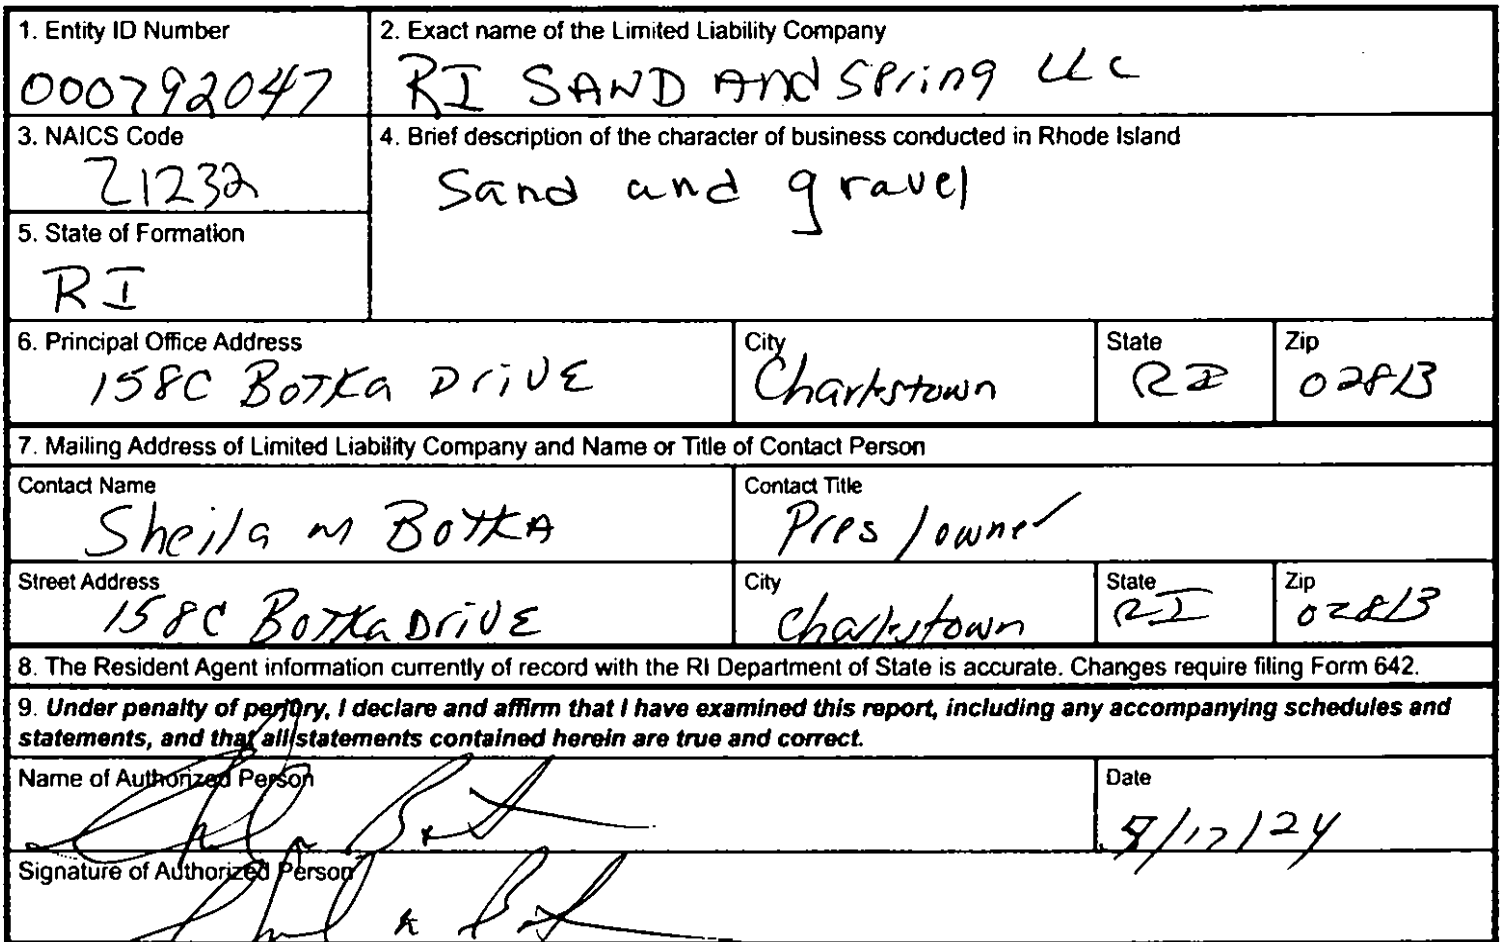 1. Entity ID Number
000792047
2. Exact name of the Limited Liability Company
RI SAND And Spring LLC
3. NAICS Code
21232
4. Brief description of the character of business conducted in Rhode Island
Sand and gravel
5. State of Formation
RI
6. Principal Office Address
158C Botka Drive
City
Charlestown
State
RI
Zip
02813
7. Mailing Address of Limited Liability Company and Name or Title of Contact Person
Contact Name
Sheila M Botka
Contact Title
Pres / owner
Street Address
158C Botka Drive
City
Charlestown
State
RI
Zip
02813
8. The Resident Agent information currently of record with the RI Department of State is accurate. Changes require filing Form 642.
9. Under penalty of perjury, I declare and affirm that I have examined this report, including any accompanying schedules and
statements, and that all statements contained herein are true and correct.
Name of Authorized Person
Date
Signature of Authorized Person